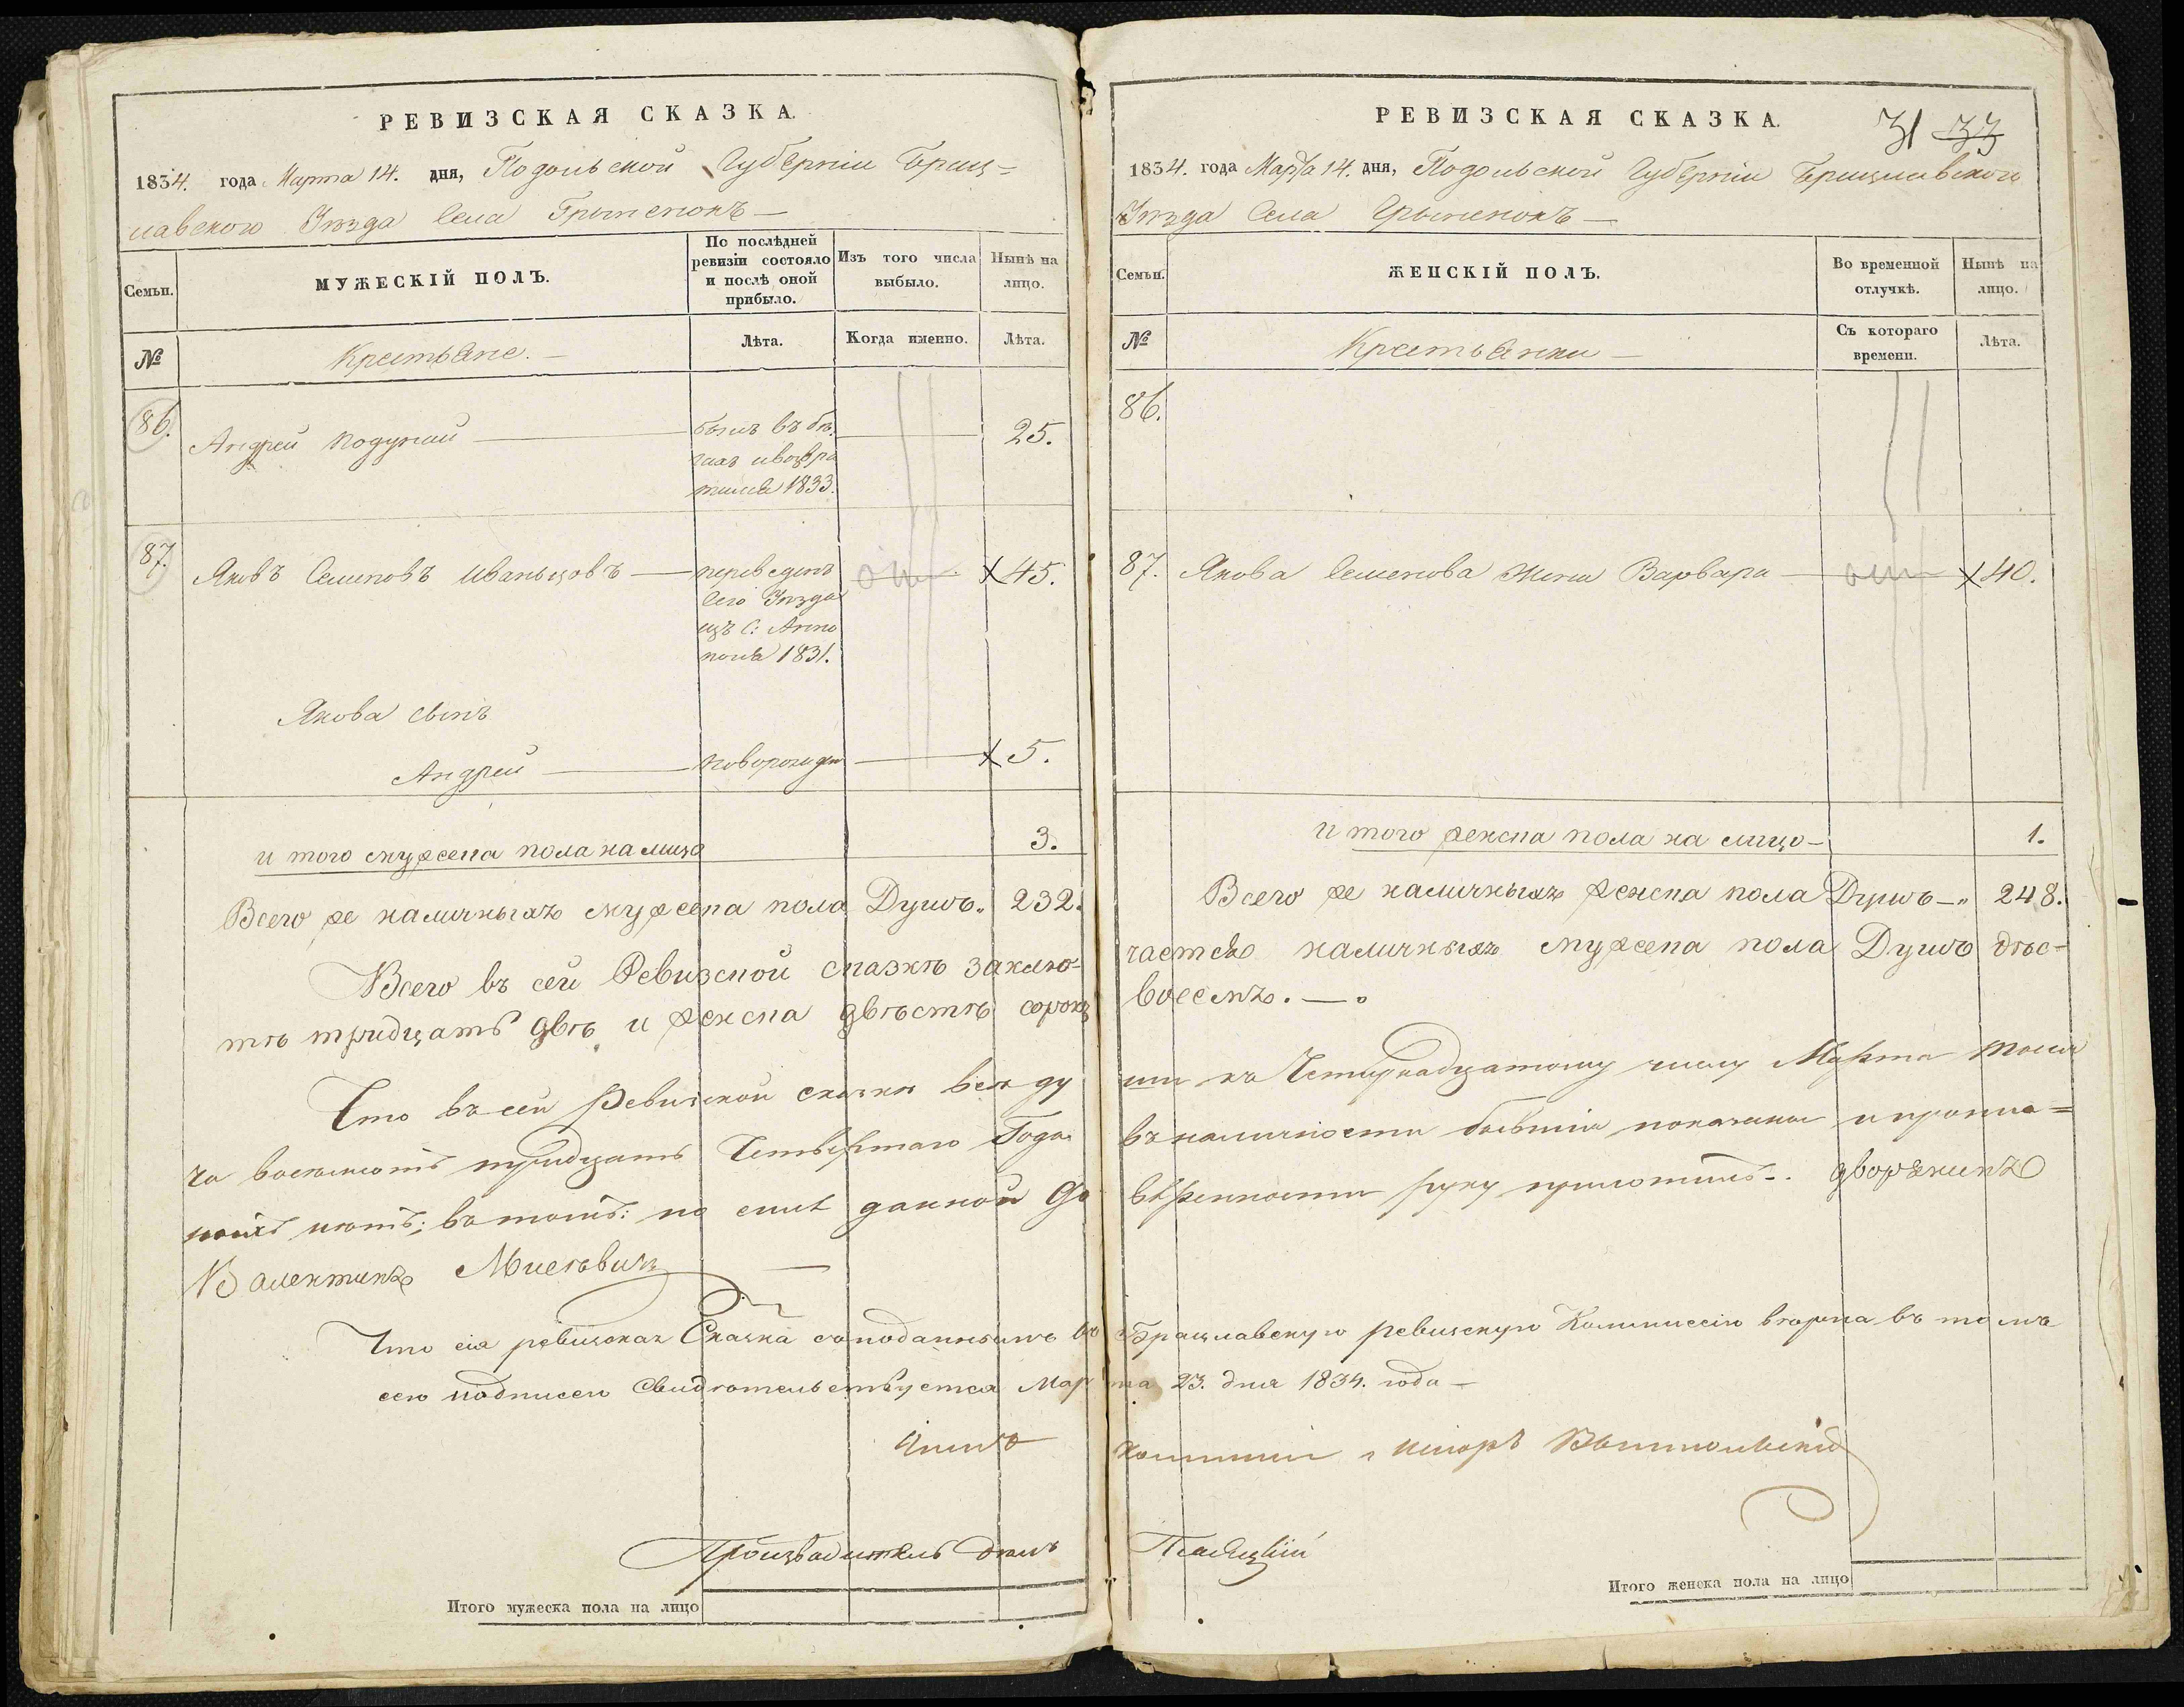 РЕВИЗСКАЯ СКАЗКА.
1834. года Марта 14. дня, Подольской Губерніи Брац-
лавского Уѣзда Села
Семьи.
МУЖЕСКІЙ ПОЛЪ.
По послѣдней ревизіи состояло и послѣ оной прибыло.
Изъ того числа выбыло.
Нынѣ на лицо.
№
Крестьяне.
Лѣта.
Когда именно.
Лѣта.
86.
Андрей Подунай
былъ въ бѣ-
гахъ и возвра
тился 1833.
25.
87.
Яковъ Семеновъ Иваньцовъ
переведенъ
сего Уѣзда
изъ С: Анно
поля 1831.
45.
Якова сынъ
Андрей
новорожден
5.
и того мужеска пола на лицо
3.
Всего же наличныхъ мужеска пола Душъ
232.
Всего въ сей Ревизской сказкѣ заклю-
тѣ тридцать двѣ и женска двѣсти сорокъ
Что въ сей Ревизской сказки всѣ ду
ча восемсотъ тридцать Четвертаго Года
нѣтъ; въ томъ: по данной до
Валентинъ
Что сія ревизская Сказка въ
сею подписью свидѣтельствуется Мар
Членъ
Производитель дѣлъ
Итого мужеска пола на лицо
РЕВИЗСКАЯ СКАЗКА.
31 33
1834. года Марта 14. дня, Подольской Губерніи Брацлавского
Уѣзда Села
Семьи.
ЖЕНСКІЙ ПОЛЪ.
Во временной отлучкѣ.
Нынѣ на лицо.
№
Крестьянки
Съ котораго времени.
Лѣта.
86.
87.
Якова Семенова жена Варвара
40.
и того женска пола на лицо
1.
Всего же наличныхъ женска пола Душъ
248.
чается наличныхъ мужеска пола Душъ двѣс-
восемъ.
ши къ Четырнадцатому числу Марта тысяч
въ наличности бывшія показаны и пропис-
вѣренности руку приложилъ. дворянинъ
Брацлавскую ревизскую Коммиссію въ томъ
та 23. дня 1834. года
Итого женска пола на лицо